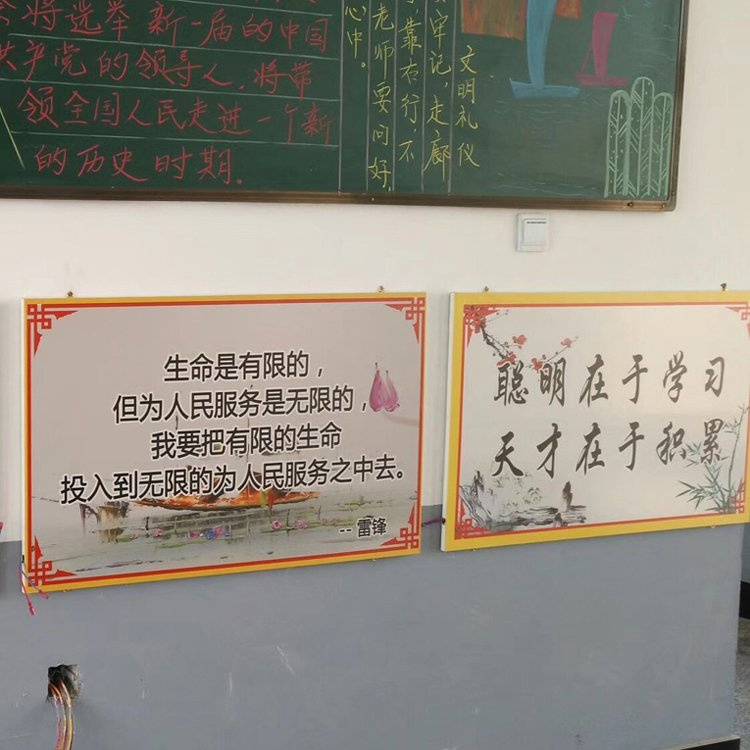 会将选举新一届的中国
共产党的领导人,将带
领全国人民走进一个新
的历史时期.
文明礼仪
牢记,走廊
靠右行,不
老师要问好
心中。
生命是有限的,
但为人民服务是无限的,
我要把有限的生命
投入到无限的为人民服务之中去。
-- 雷锋
聪明在于学习
天才在于积累